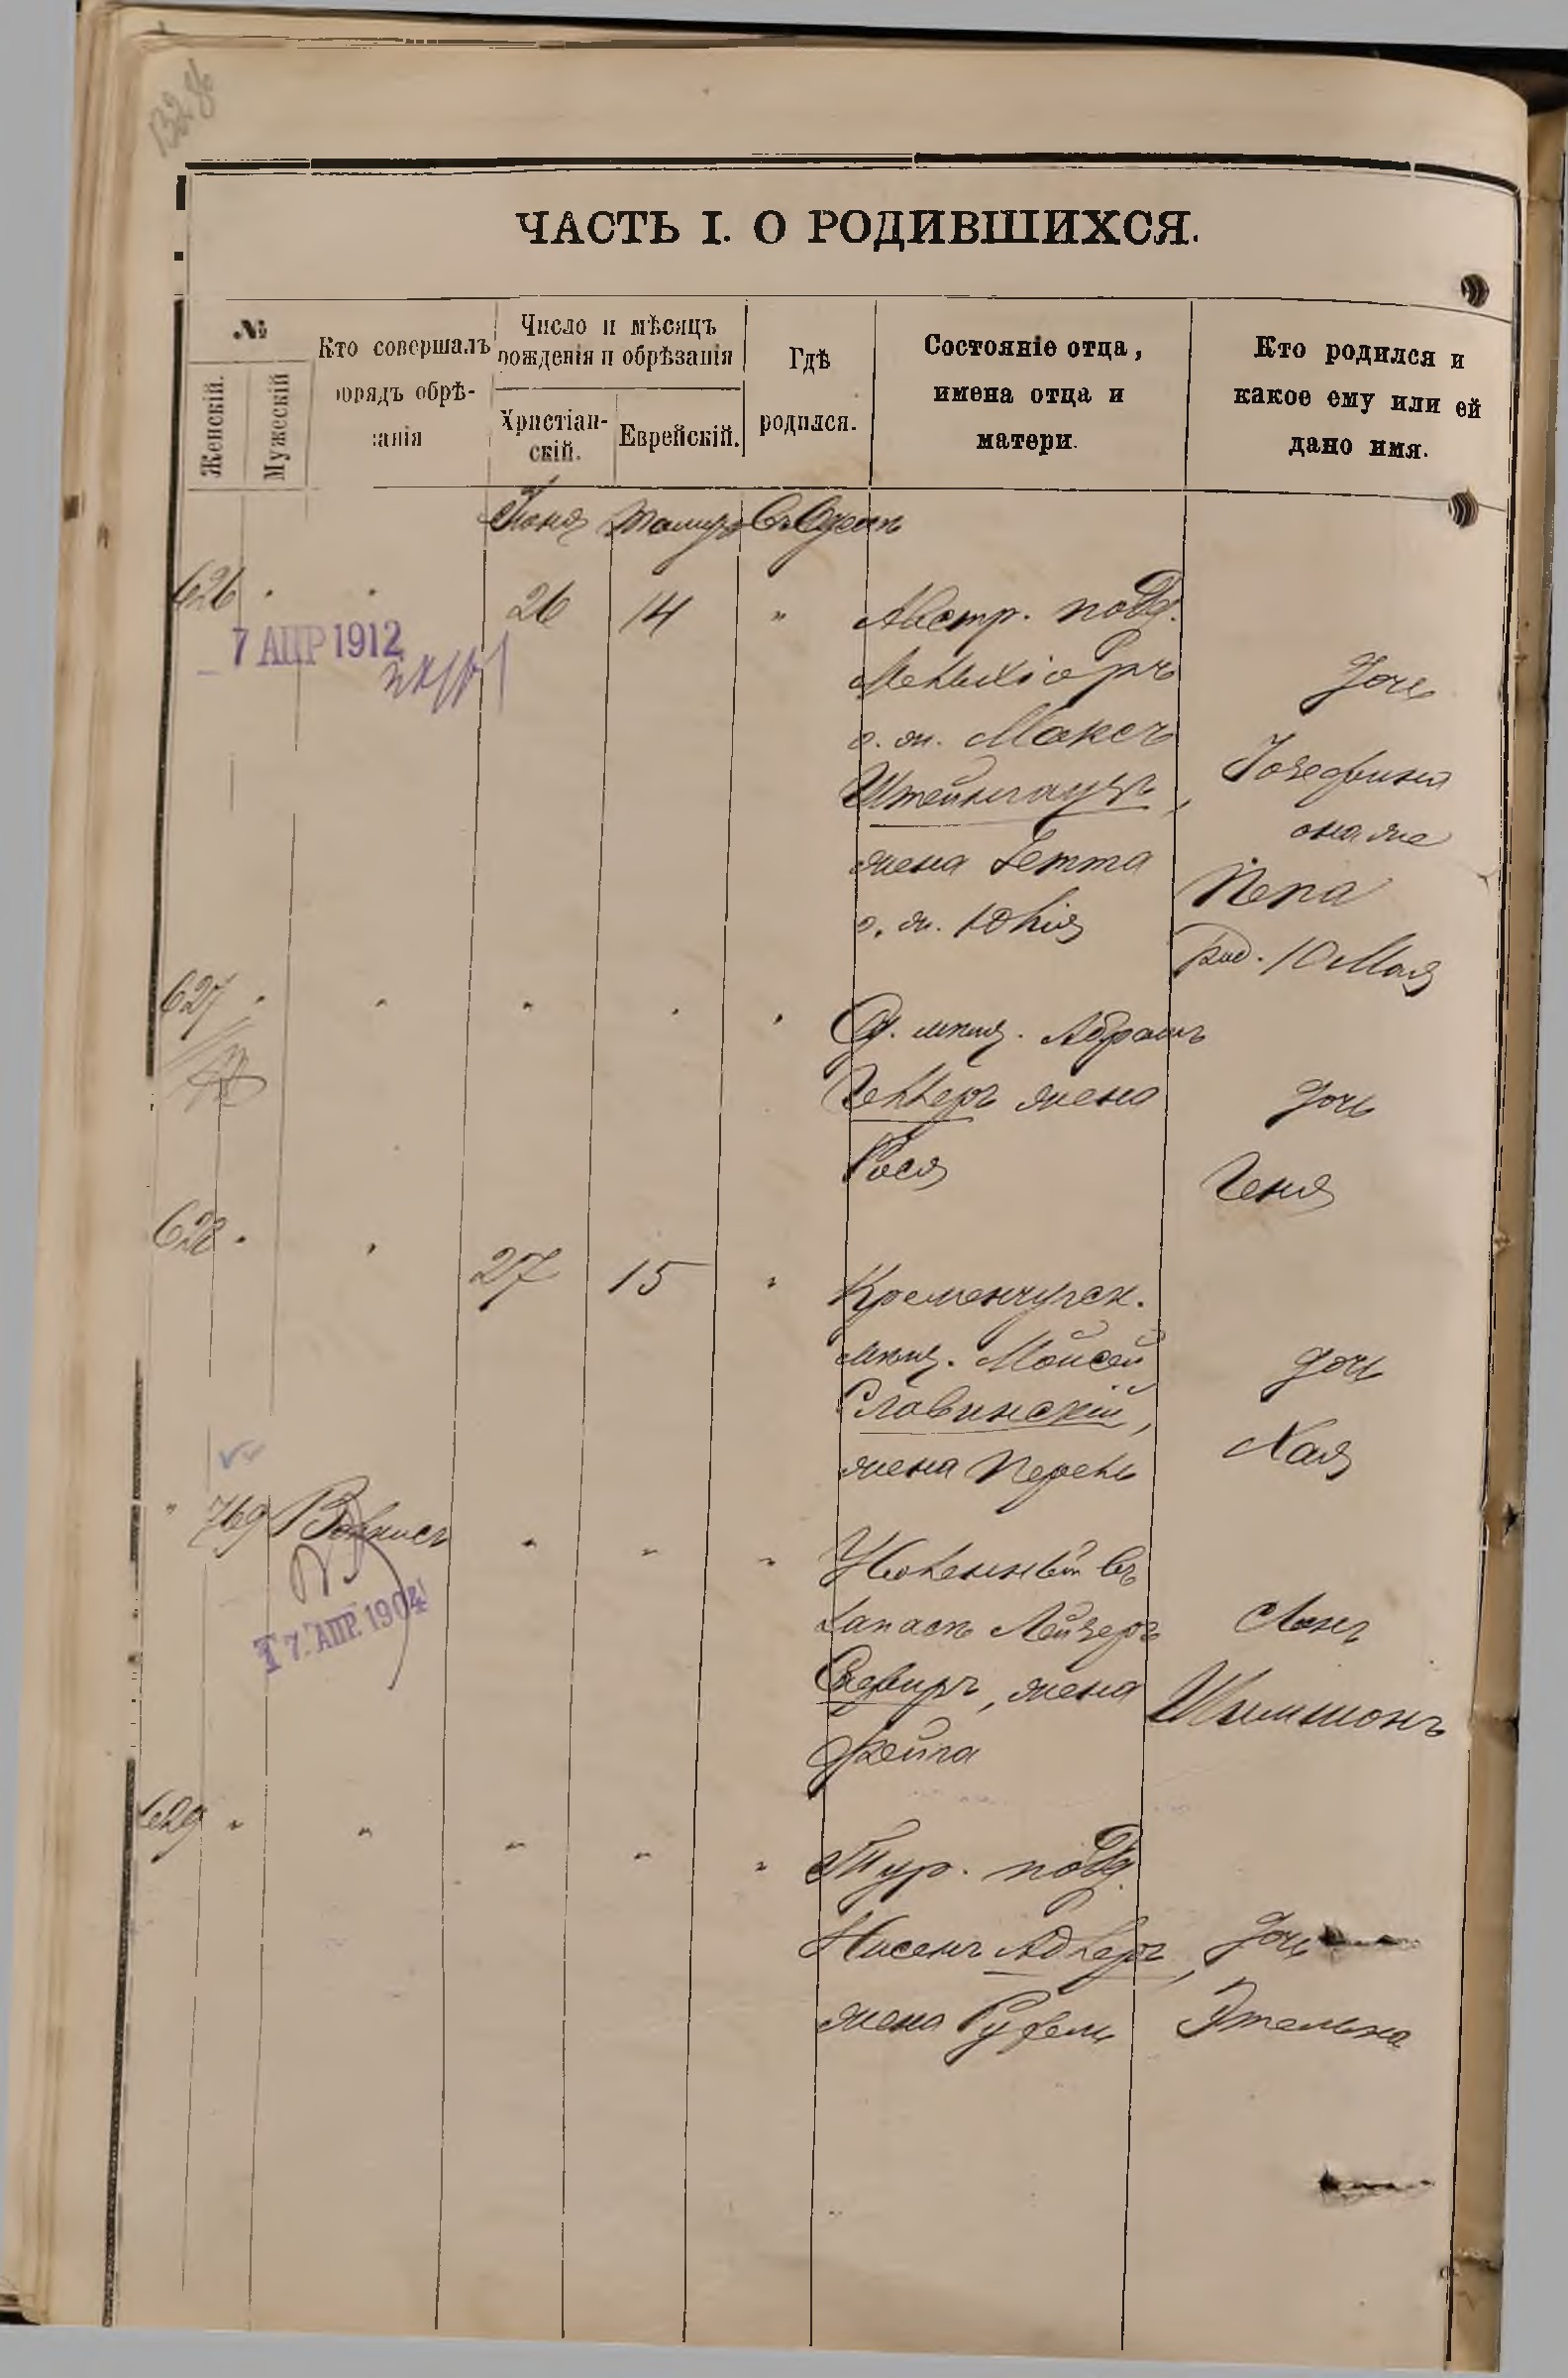 ЧАСТЬ I. О РОДИВШИХСЯ.
№
Женскій.
Мужескій
Кто совершалъ
обрядъ обрѣ-
занія
Число и мѣсяцъ
рожденія и обрѣзанія
Христіан-
скій.
Еврейскій.
Гдѣ
родился.
Состояніе отца,
имена отца и
матери.
Кто родился и
какое ему или ей
дано имя.
Іюня Тамузъ Въ Одессѣ
626 " " 26 14 " Австр. подд.
7 АПР 1912
Мельхіоръ
о. ж. Максъ
Штейнгаузъ,
жена Іетта
о. ж. Юлія
Дочь
Іозефина
она же
Пепа
род. 10 Мая
627 " " " " " Од. мѣщ. Абрамъ
Геллеръ жена
Рося
дочь
Геня
628 " " 27 15 " Кременчугск.
мѣщ. Мойсей
Славинскій,
жена Перель
дочь
Хая
" 769 " " " Уволенный въ
запасъ Лейзеръ
17. АПР. 1904
жена
Фейга
Сынъ
Шимшонъ
629 " " " " " Тур. подд.
Нисенъ Адлеръ,
жена Рухель
Дочь
Этельна